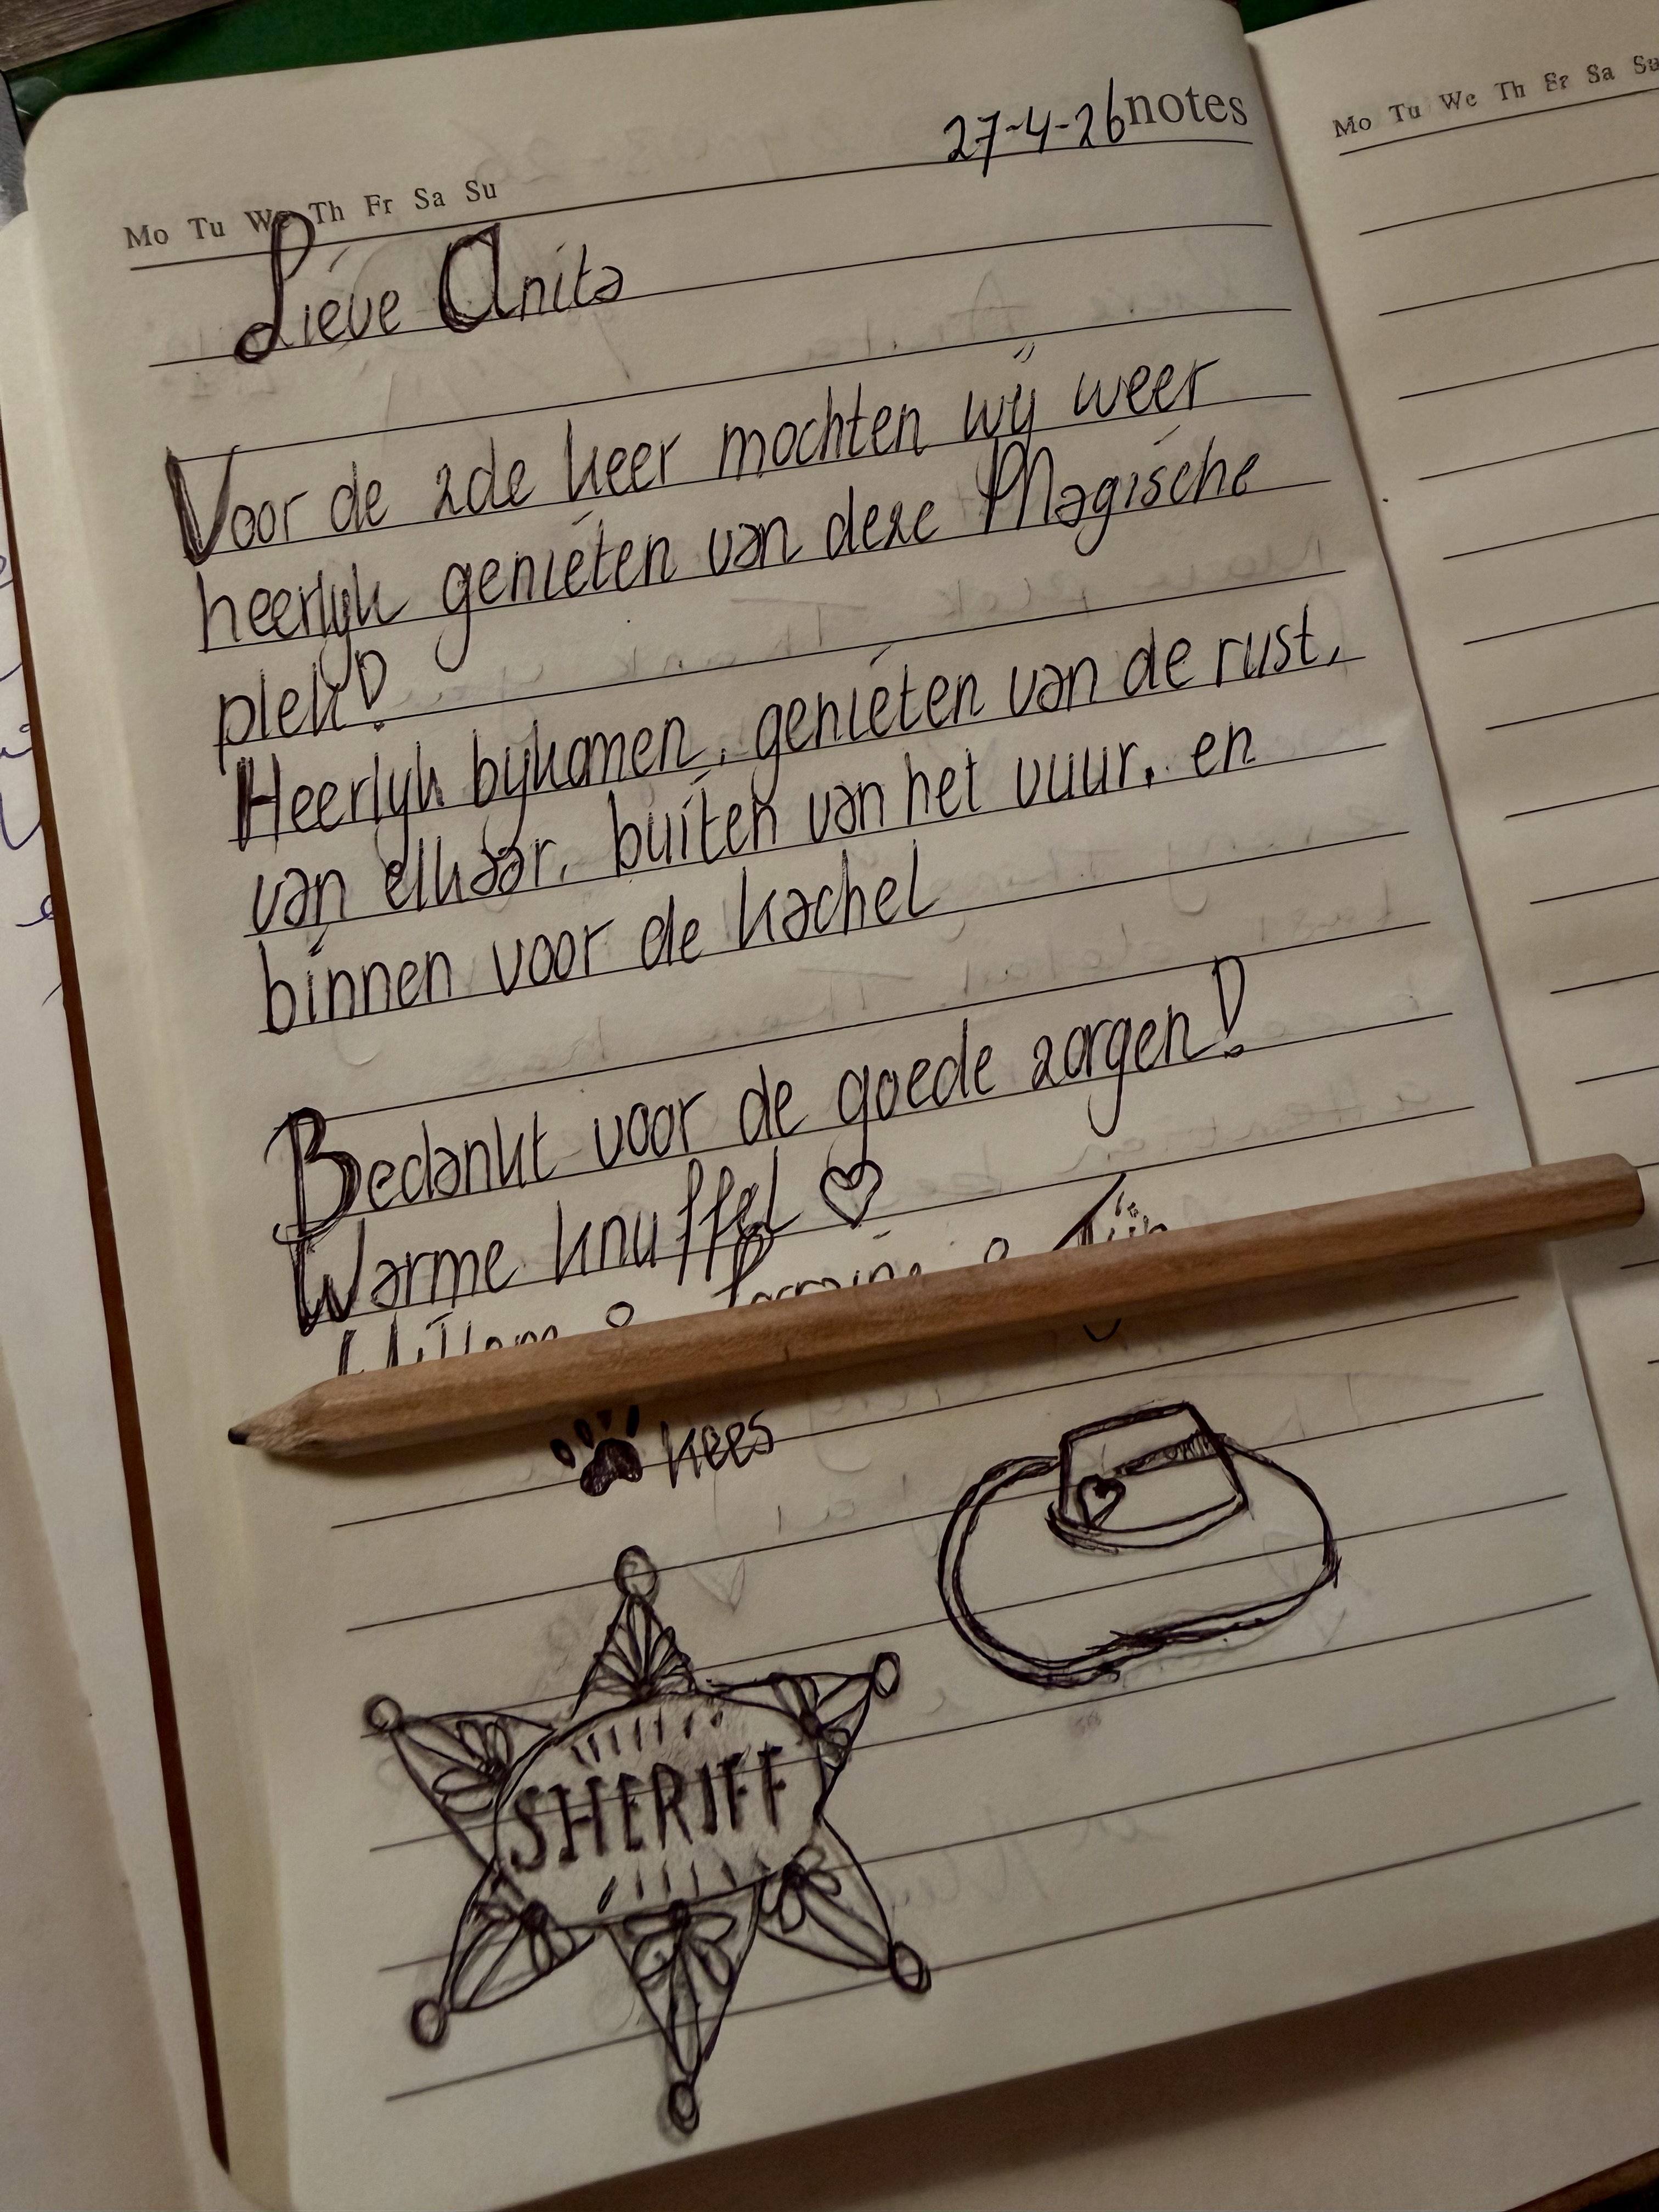 27-4-26 notes
Mo Tu We Th Fr Sa Su
Mo Tu We Th Fr Sa Su
Lieve Anita
Voor de 2de keer mochten wij weer
heerlijk genieten van deze Magische
plek!
Heerlijk bijkomen, genieten van de rust,
van elkaar, buiten van het vuur, en
binnen voor de kachel
Bedankt voor de goede zorgen!
Warme knuffel ♡
Willem &
Kees
SHERIFF